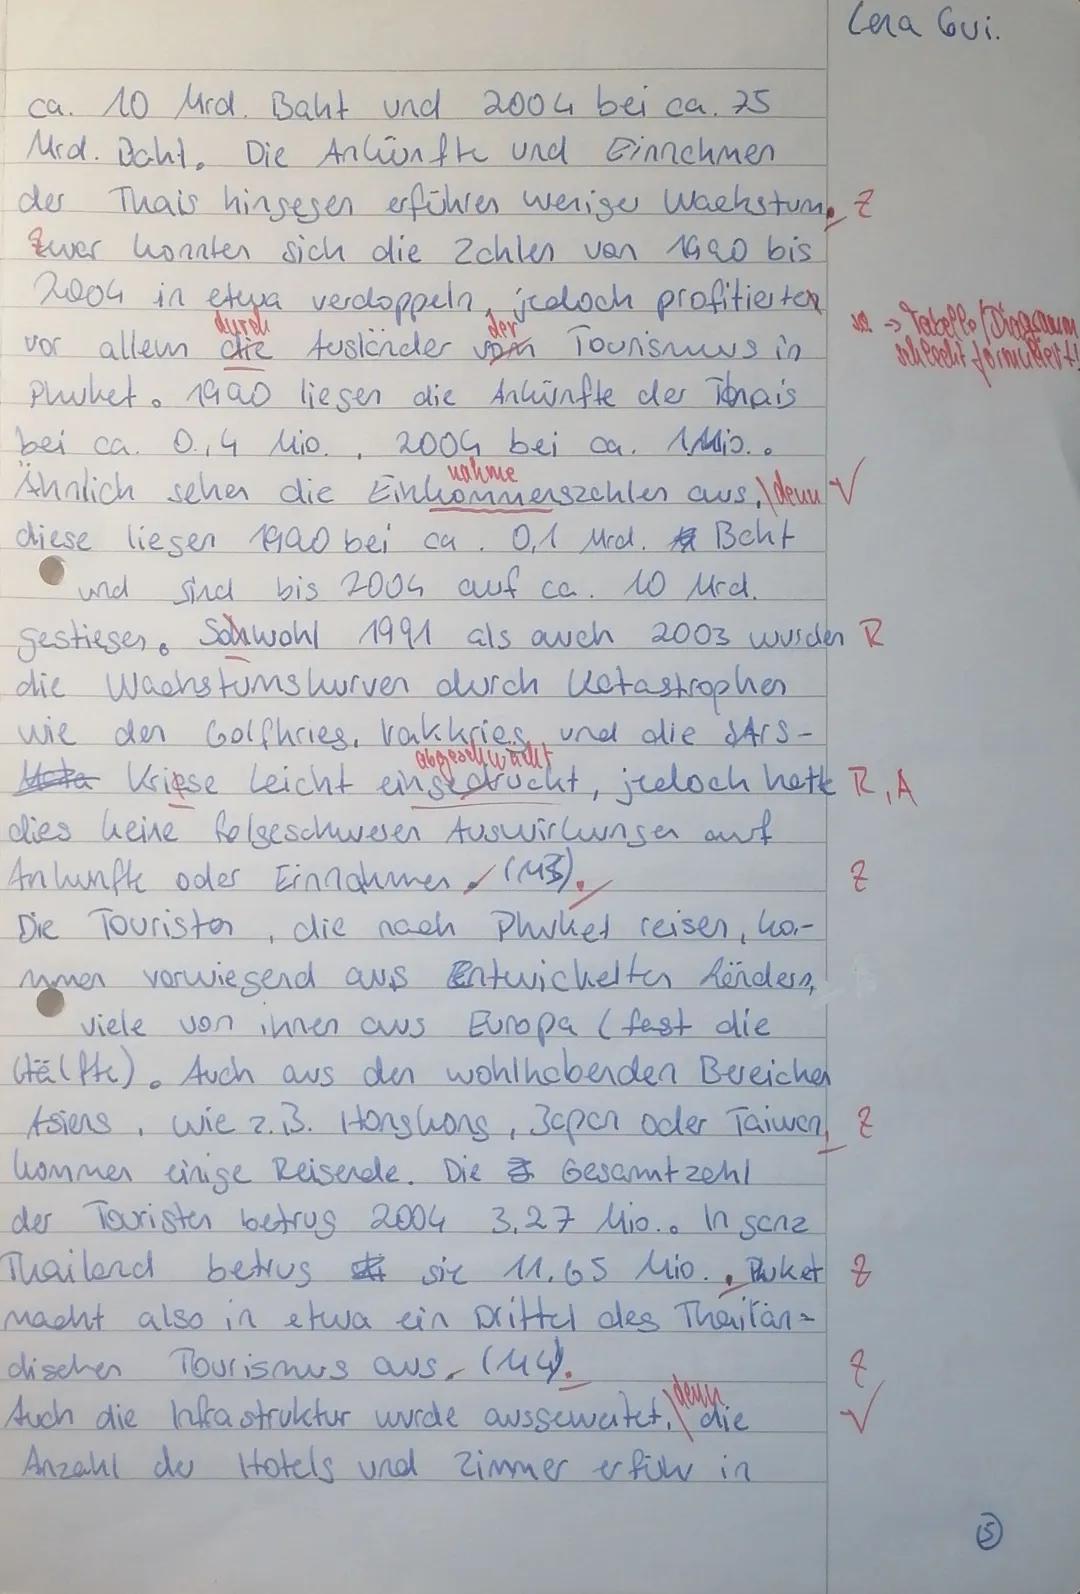 Lena Gui.
ca. 10 Mrd. Baht und 2004 bei ca. 75
Mrd. Baht. Die Ankünfte und Einnahmen
der Thais hingegen erfuhren weniger Wachstum. Z
Zwar konnten sich die Zahlen von 1990 bis
2004 in etwa verdoppeln, jedoch profitierten
durch der
vor allem die Ausländer vom Tourismus in
-> Tabelle/Diagramm
schlecht formuliert!
Phuket. 1990 liegen die Ankünfte der Thais
bei ca. 0,4 Mio., 2004 bei ca. 1 Mio..
nahme
Ähnlich sehen die Einkommenszahlen aus, denn √
diese liegen 1990 bei ca. 0,1 Mrd. Baht
und sind bis 2004 auf ca. 10 Mrd.
gestiegen. Sowohl 1991 als auch 2003 wurden R
die Wachstumskurven durch Katastrophen
wie den Golfkrieg, Irakkrieg und die SARS-
abgeschwächt
Kriese leicht eingedruckt, jedoch hatte R, A
dies keine folgeschweren Auswirkungen auf
Ankunfte oder Einnahmen. (M3). Z
Die Touristen, die nach Phuket reisen, ko-
mmen vorwiegend aus Entwickelten Ländern,
viele von ihnen aus Europa (fast die
Hälfte). Auch aus den wohlhabenden Bereichen
Asiens, wie z.B. Hongkong, Japan oder Taiwan, Z
kommen einige Reisende. Die Gesamtzahl
der Touristen betrug 2004 3,27 Mio.. In ganz
Thailand betrug sie 11,65 Mio.. Phuket Z
macht also in etwa ein Drittel des Thailän-
dischen Tourismus aus. (M4). Z
denn
Auch die Infrastruktur wurde ausgeweitet, die √
Anzahl der Hotels und Zimmer erfuhr in
5